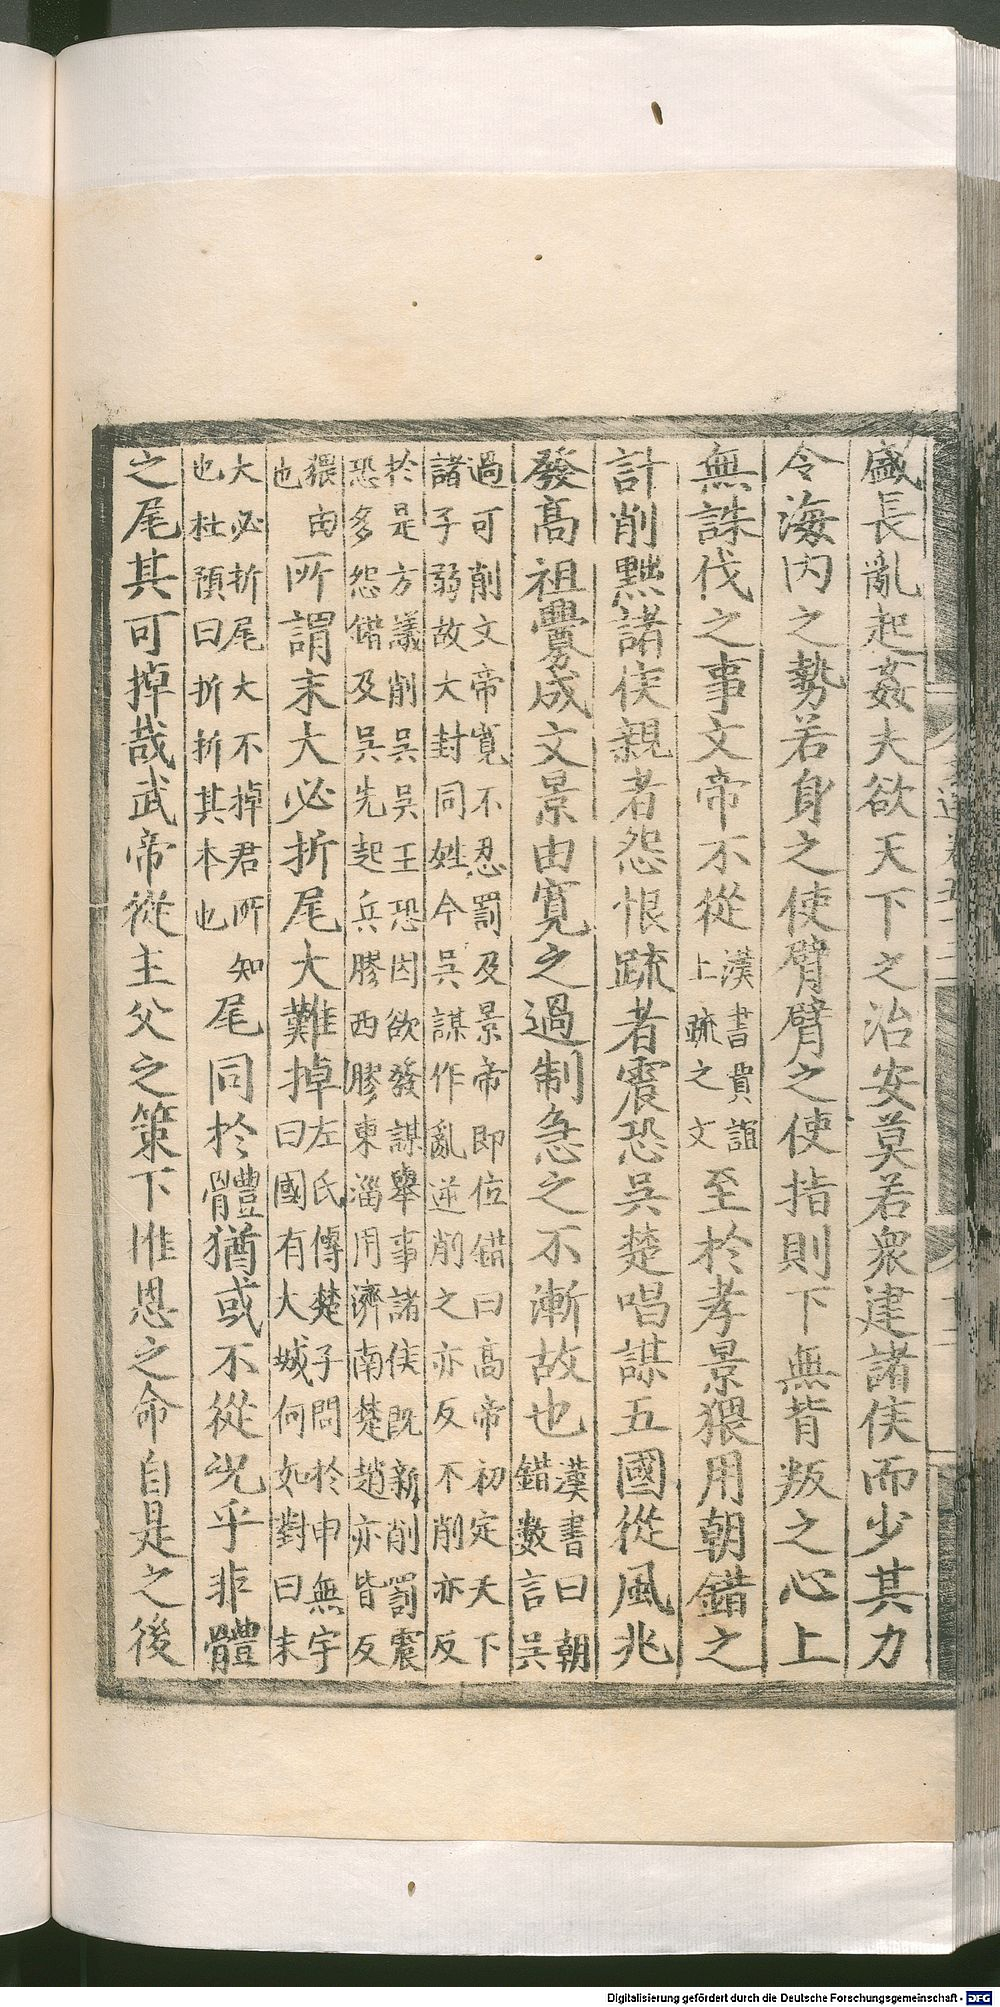 盛長亂起姦大欲天下之治安莫若衆建諸侯而少其力
令海内之勢若身之使臂臂之使指則下無背叛之心上
無誅伐之事文帝不從漢書賈誼上疏之文至於孝景猥用朝錯之
計削黜諸侯親者怨恨疏者震恐吳楚唱謀五國從風兆
發高祖釁成文景由寬之過制急之不漸故也漢書曰朝錯數言吳
過可削文帝寬不忍罰及景帝即位錯曰高帝初定天下
諸子弱故大封同姓今吳謀作亂逆削之亦反不削亦反
於是方議削吳吳王恐因欲發謀舉事諸侯既新削罰震
恐多怨錯及吳先起兵膠西膠東淄用濟南楚趙亦皆反
猥由也所謂末大必折尾大難掉左氏傳楚子問於申無宇曰國有大城何如對曰末
大必折尾大不掉君所知也杜預曰折折其本也尾同於體猶或不從況乎非體
之尾其可掉哉武帝從主父之策下推恩之命自是之後
Digitalisierung gefördert durch die Deutsche Forschungsgemeinschaft - DFG